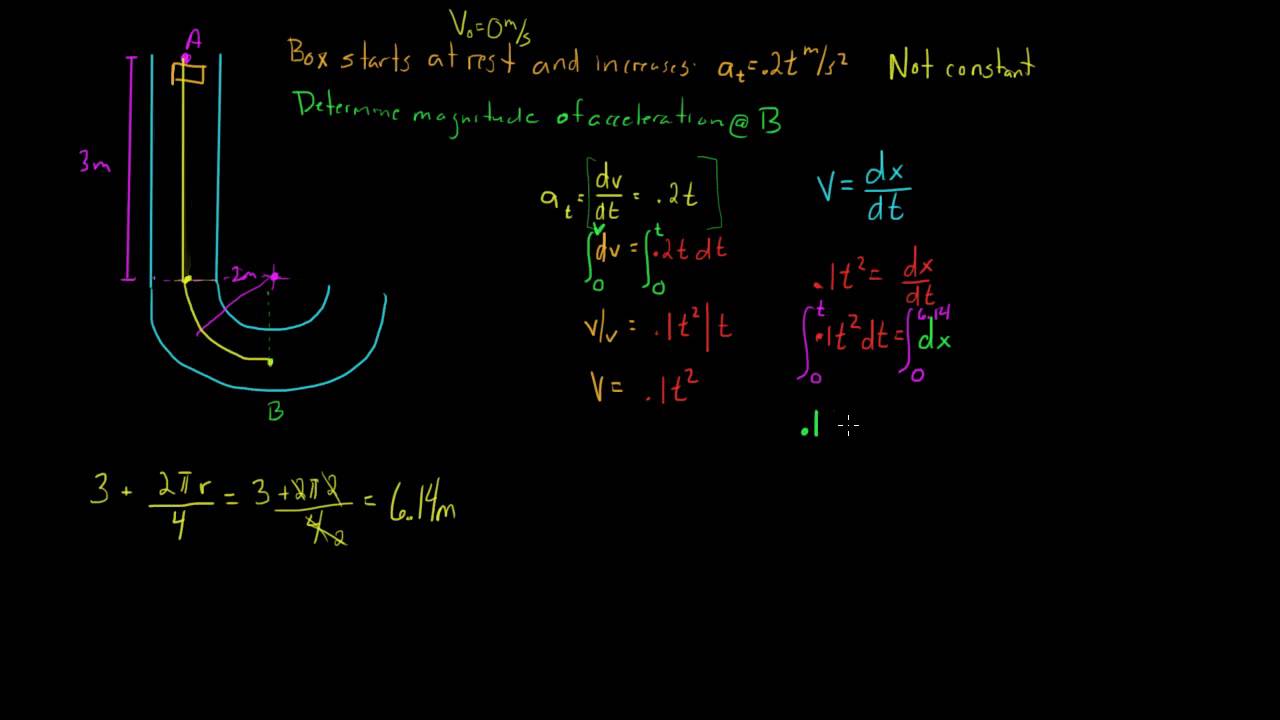 V₀=0 m/s
Box starts at rest and increases. aₜ=.2t m/s² Not constant
Determine magnitude of acceleration @ B
A
3m
2m
B
aₜ = [dv/dt = .2t]
∫₀ᵛ dv = ∫₀ᵗ .2t dt
v/v = .1t² | t
V = .1t²
V = dx/dt
.1t² = dx/dt
∫₀ᵗ .1t² dt = ∫₀^6.14 dx
.1
3 + 2πr/4 = 3 + 2π2/4 2 = 6.14m